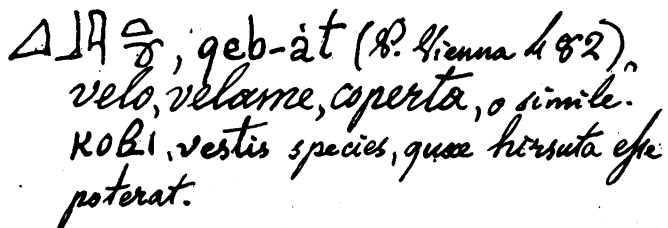 𓈎𓃀𓇋𓏏, qeb-àt (S. Vienna 82)
velo, velame, coperta, o simile.
ⲕⲟⲃⲓ, vestis species, quae hirsuta esse
poterat.